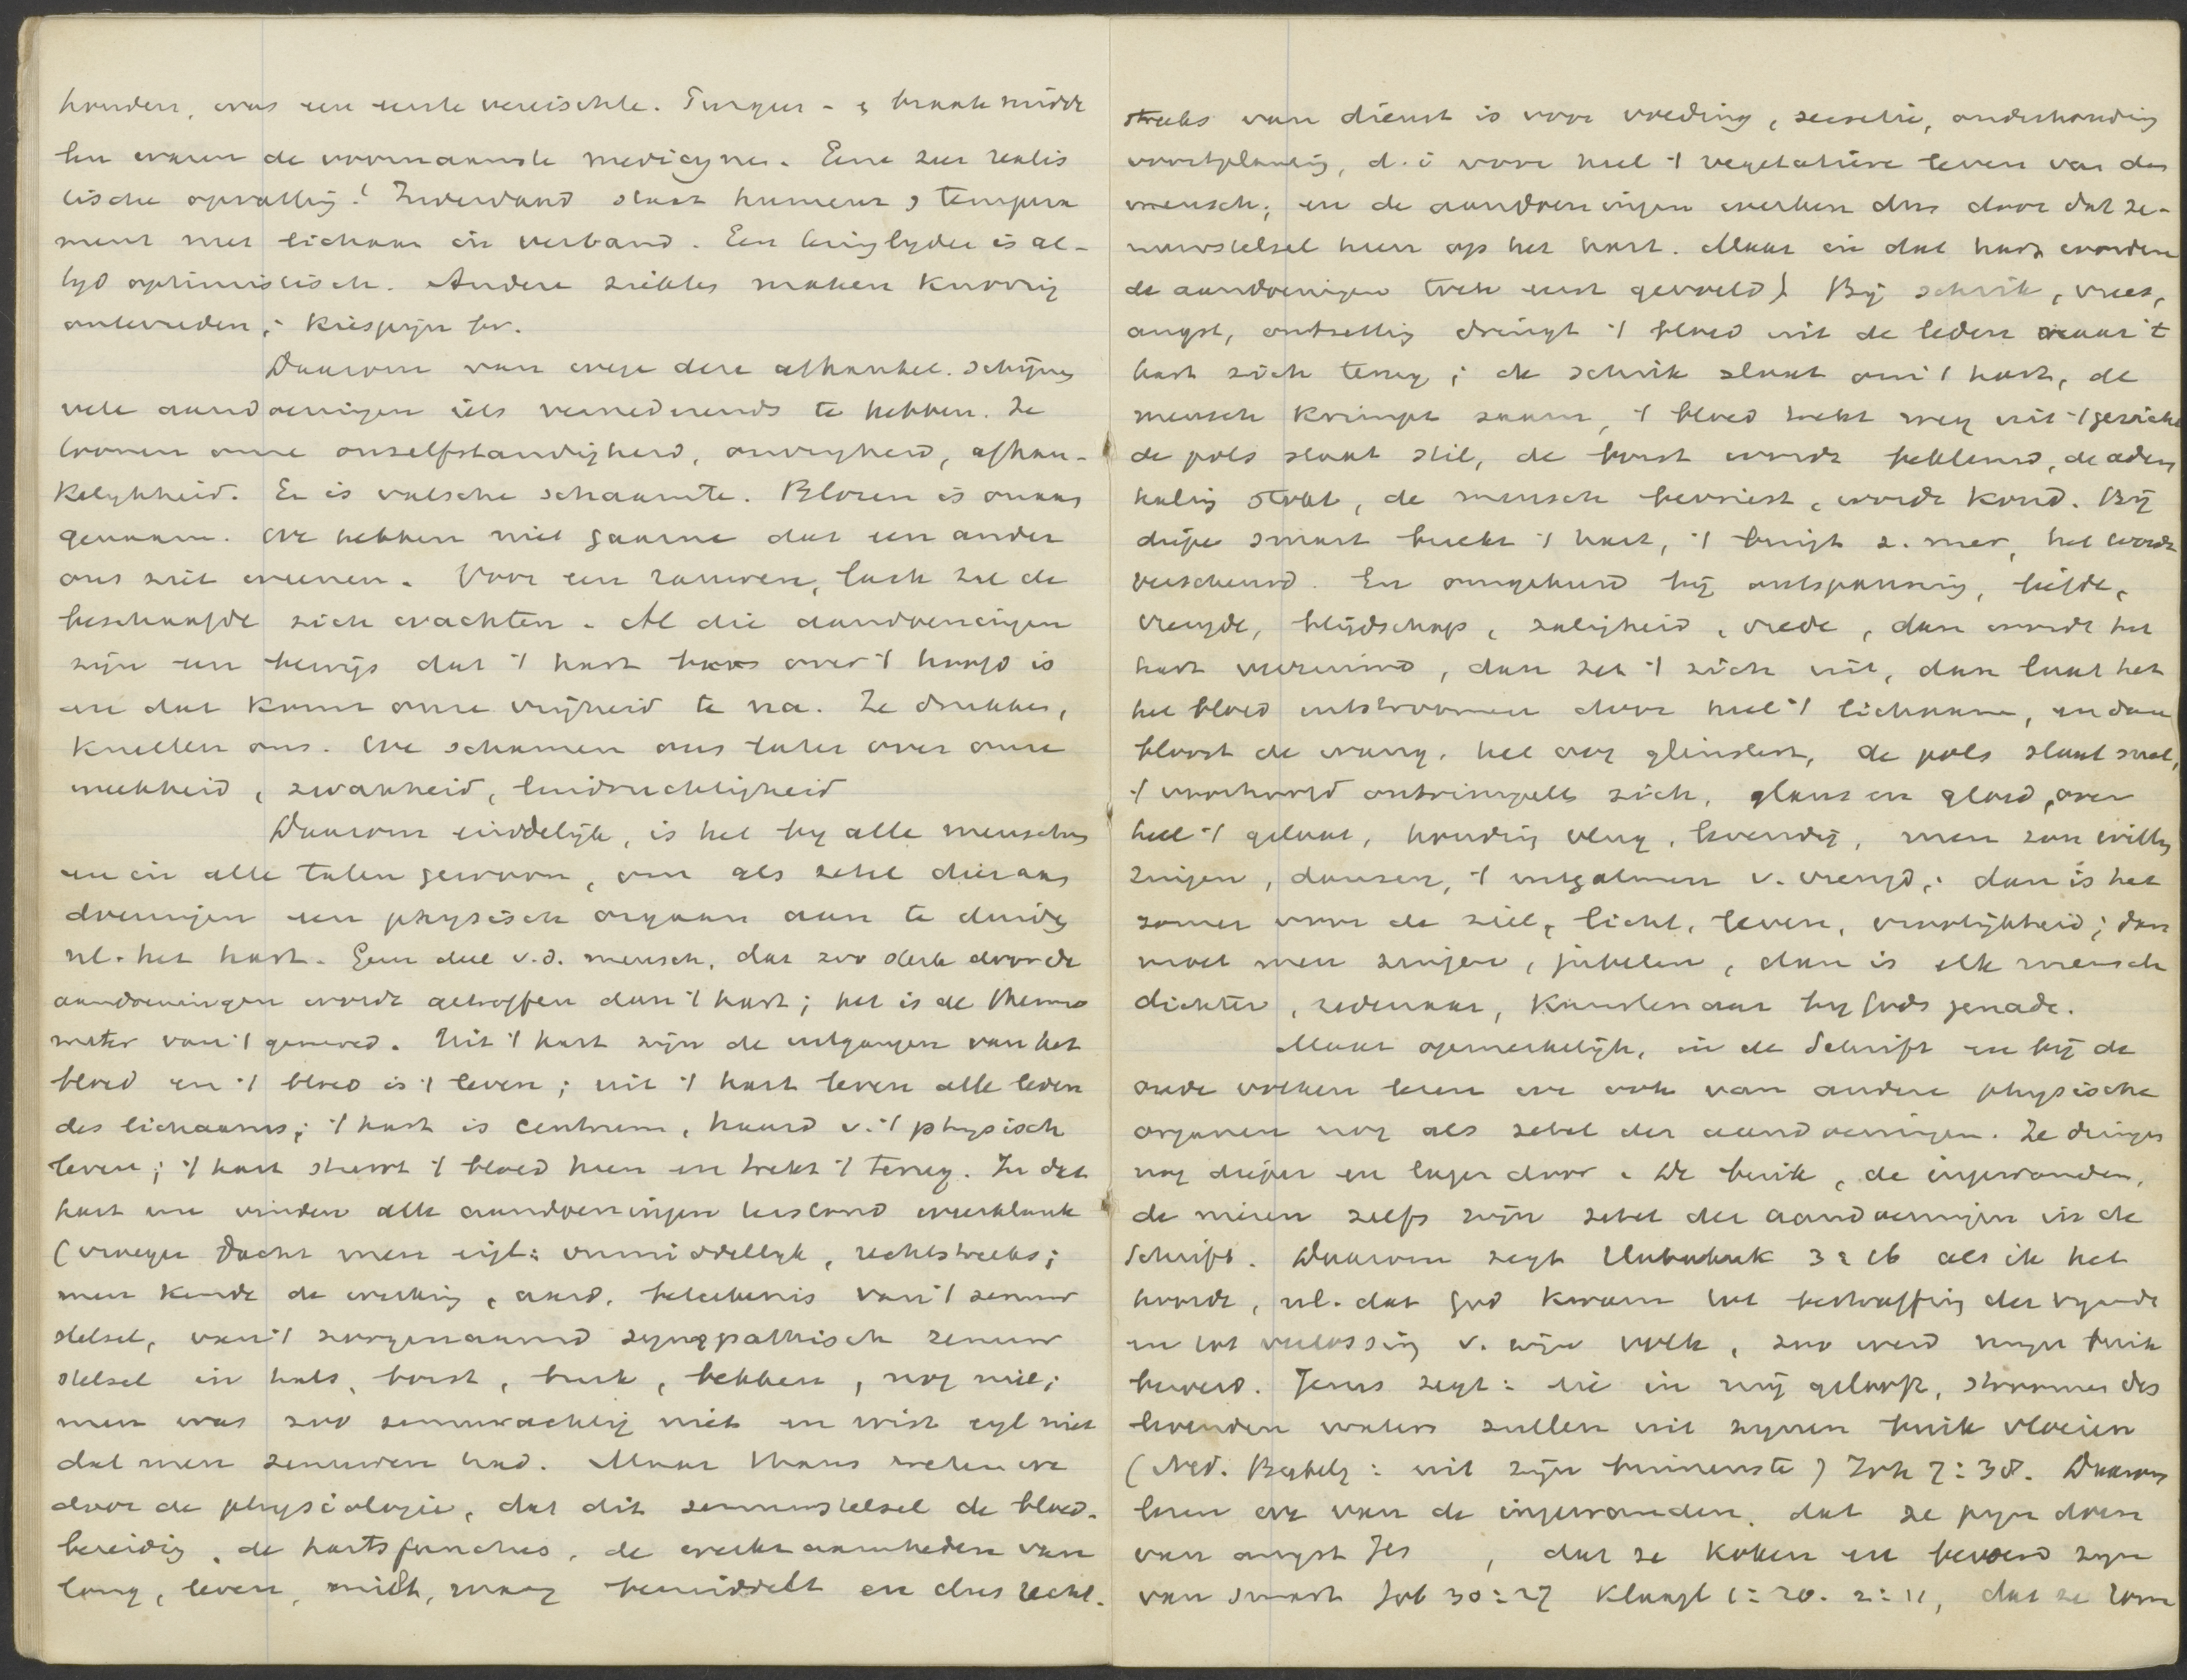 houden, was een eerste vereischte. Purgeer- & braakmidde
len waren de voornaamste medicynen. Eene zeer realis
tische opvatting! Inderdaad staat humeur & tempera
ment met lichaam in verband. Een teringlyder is al-
tyd optimistisch. Andere ziektes maken knorrig
ontevreden, kiespijn bv.
Daarom van wege dere afhankel. schijnen
vele aandoeningen iets vernederends te hebben. Ze
toonen onze onzelfstandigheid, onvryheid, afhan-
kelykheid. Er is valsche schaamte. Blozen is onaan
genaam. We hebben niet gaarne dat een ander
ons ziet weenen. Voor een rauwen lach zal de
beschaafde zich wachten. Al die aandoeningen
zijn een bewijs dat 't hart baas over 't hoofd is
en dat komt onze vrijheid te na. Ze drukken,
knellen ons. We schamen ons later over onze
weekheid, zwakheid, luidruchtigheid
Daarom eindelijk, is het by alle menschen
en in alle talen gewoon, om als zetel dier aan
doeningen een physisch orgaan aan te duiden
nl. het hart. Geen deel v.d. mensch, dat zoo sterk door de
aandoeningen wordt getroffen dan 't hart; het is de thermo
meter van 't gemoed. Uit 't hart zijn de uitgangen van het
bloed en 't bloed is 't leven; uit 't hart leven alle leden
des lichaams; 't hart is centrum, haard v. 't physisch
leven; 't hart stuwt 't bloed heen en trekt 't terug. In dat
hart nu vinden alle aandoeningen terstond weerklank
(vroeger dacht men eigl: onmiddellyk, rechtstreeks;
men kende de werking, aard, beteekenis van 't zenuw
stelsel, van 't zoogenaamd sympathisch zenuw
stelsel in hals, borst, buik, bekken, nog niet;
men was zoo zenuwachtig niet en wist eigl niet
dat men zenuwen had. Maar thans weten we
door de physiologie, dat dit zenuwstelsel de bloed-
bereiding, de hartsfuncties, de werkzaamheden van
long, lever, milt, maag bemiddelt en dus recht-
streeks van dienst is voor voeding, secretie, onderhouding
voortplanting, d.i voor heel 't vegetatieve leven van den
mensch; en de aandoeningen werken dus door dat ze-
nuwstelsel heen op het hart. Maar in dat hart worden
de aandoeningen toch eerst gevoeld) Bij schrik, vrees,
angst, ontzetting dringt 't bloed uit de leden naar 't
hart zich terug; de schrik slaat om 't hart, de
mensch krimpt saam, 't bloed trekt weg uit 't gezicht
de pols staat stil, de borst wordt beklemd, de adem
haling stokt, de mensch bevriest, wordt koud. Bij
diepe smart breekt 't hart, 't buigt z. neer, het wordt
verscheurd. En omgekeerd bij ontspanning, liefde,
vreugde, blijdschap, zaligheid, vrede, dan wordt het
hart verruimd, dan zet 't zich uit, dan laat het
het bloed uitstroomen door heel 't lichaam, en dan
bloost de wang, het oog glinstert, de pols slaat snel,
't voorhoofd ontrimpelt zich, glans en gloed over
heel 't gelaat, houding vlug, levendig, men zou willen
zingen, dansen, 't uitgalmen v. vreugd; dan is het
zomer voor de ziel, licht, leven, vroolijkheid; dan
moet men zingen, jubelen, dan is elk mensch
dichter, redenaar, kunstenaar by Gods genade.
Maar opmerkelijk, in de Schrift en bij de
oude volken lezen we ook van andere physische
organen nog als zetel der aandoeningen. Ze dringen
nog dieper en lager door. De buik, de ingewanden,
de nieren zelfs zijn zetel der aandoeningen in de
Schrift. Daarom zegt Habakuk 3:16 als ik het
hoorde, nl. dat God kwam tot bestraffing der vyande
en tot verlossing v. zijn volk, zoo werd mijn buik
beroerd. Jezus zegt: die in mij gelooft, stroomen des
levenden waters zullen uit zynen buik vloeien
(Ned. Bybelg: uit zijn binnenste) Joh 7:38. Daarom
lezen we van de ingewanden, dat ze pyn doen
van angst Jes , dat ze koken en beroerd zyn
van smart Job 30:27 Klaagl 1:20. 2:11, dat ze rom